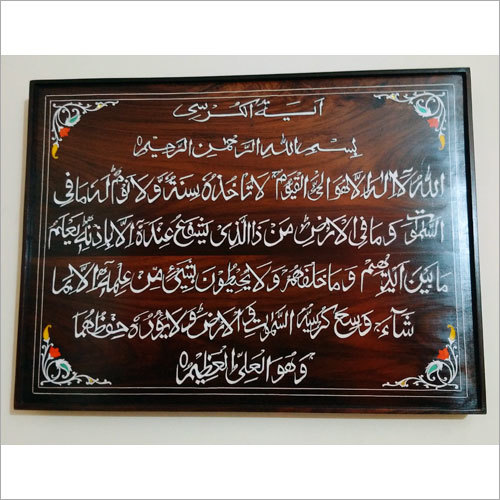 آیة الکرسی
بسم الله الرحمن الرحیم
الله لا اله الا هو الحی القیوم لا تاخذه سنة ولا نوم له ما فی
السموت وما فی الارض من ذا الذی یشفع عنده الا باذنه یعلم
ما بین ایدیهم وما خلفهم ولا یحیطون بشیئ من علمه الا بما
شاء وسع کرسیه السموت والارض ولا یؤده حفظهما
وهو العلی العظیم